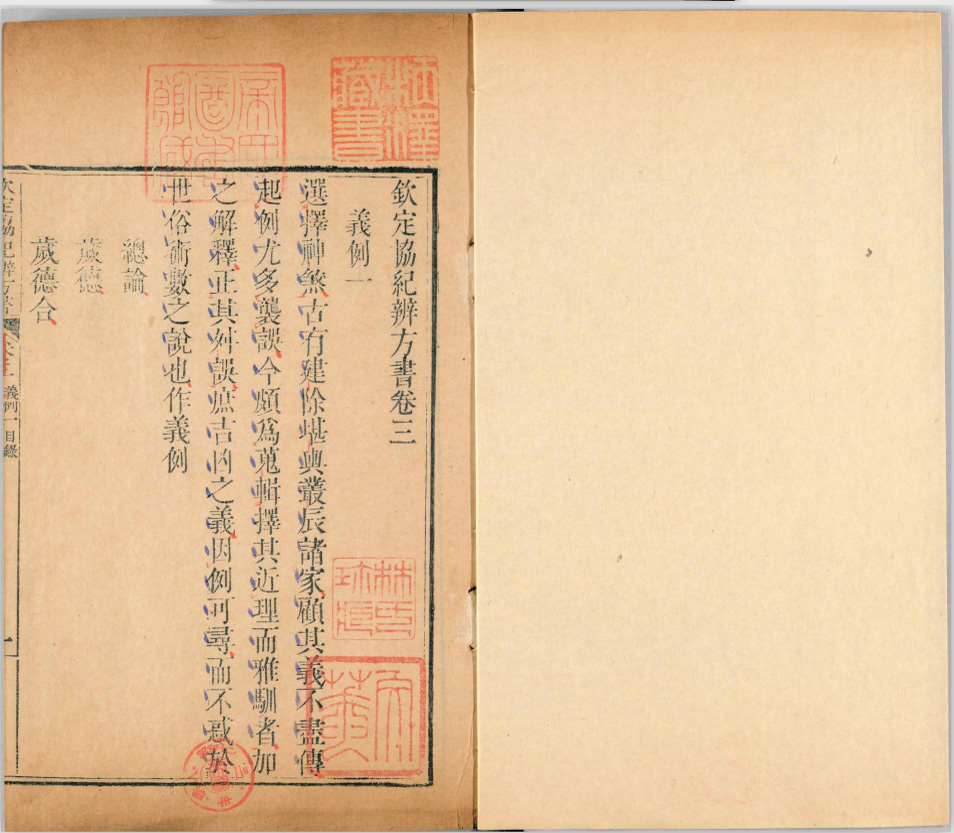 欽定協紀辨方書卷三
義例一
選擇神煞古有建除堪輿叢辰諸家顧其義不盡傳
起例尤多襲誤今頗為蒐輯擇其近理而雅馴者加
之解釋正其舛誤庶吉凶之義因例可尋而不惑於
世俗術數之說也作義例
總論
歲德
歲德合
欽定協紀辨方書
卷三
義例一
目錄
一